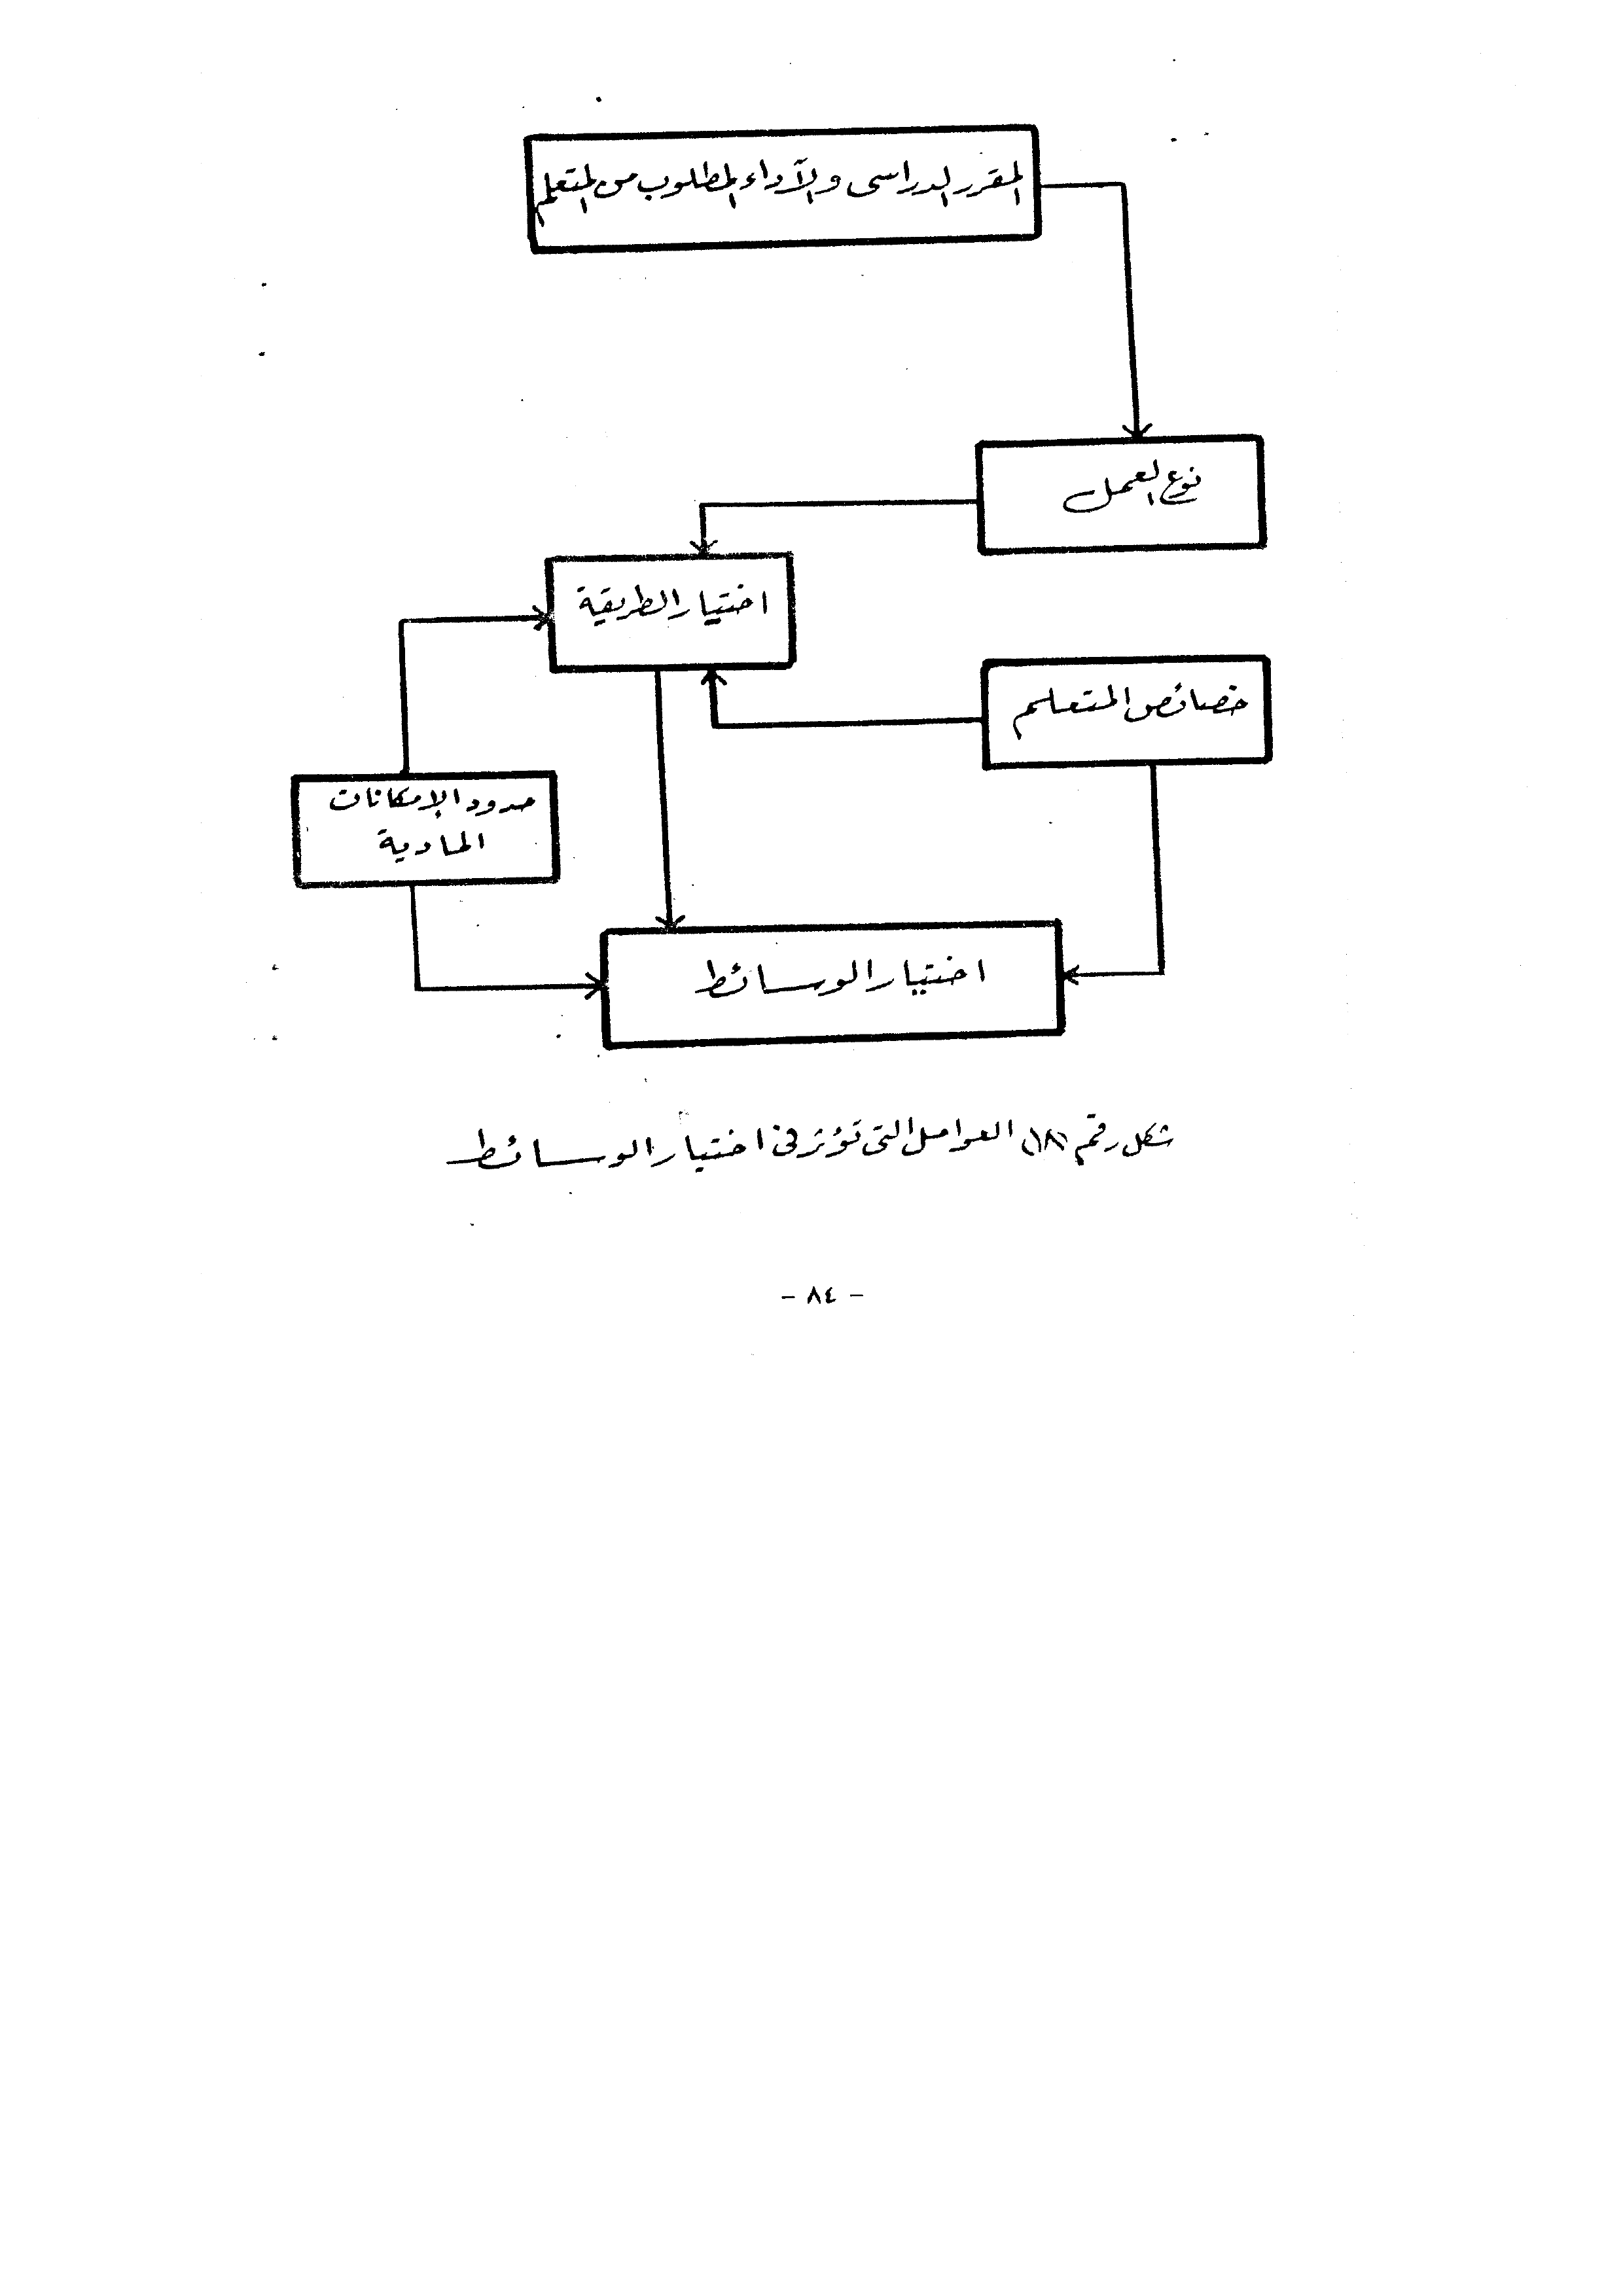 المقرر الدراسى والأداء المطلوب من المتعلم
نوع العمل
اختيار الطريقة
خصائص المتعلم
حدود الإمكانات
المادية
اختيار الوسائط
شكل رقم (١٨) العوامل التى تؤثر فى اختيار الوسائط
- ٨٤ -